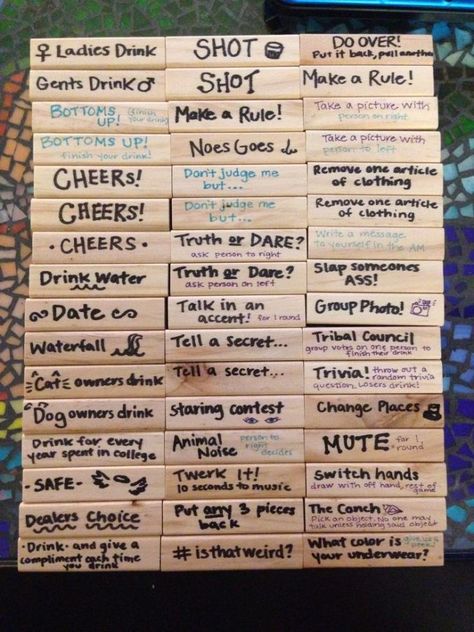 ♀ Ladies Drink
Gents Drink ♂
BOTTOMS UP! (finish your drink)
BOTTOMS UP!
finish your drink!
CHEERS!
CHEERS!
· CHEERS ·
Drink Water
Date
Waterfall
Cat owners drink
Dog owners drink
Drink for every
year spent in college
- SAFE -
Dealers Choice
· Drink · and give a
compliment each time
you drink
SHOT
SHOT
Make a Rule!
Noes Goes
Don't judge me
but...
Don't judge me
but...
Truth or DARE?
ask person to right
Truth or Dare?
ask person on left
Talk in an
accent! for 1 round
Tell a secret...
Tell a secret...
staring contest
Animal
Noise
person to
right
decides
Twerk It!
10 seconds to music
Put any 3 pieces
back
# is that weird?
DO OVER!
Put it back, pull another
Make a Rule!
Take a picture with
person on right
Take a picture with
person to left
Remove one article
of clothing
Remove one article
of clothing
Write a message
to yourself in the AM
Slap someones
ASS!
Group Photo!
Tribal Council
group votes on one person to
finish their drink
Trivia! throw out a
random trivia
question. Losers drink!
Change Places
MUTE for 1
round
Switch hands
draw with off hand, rest of
game
The Conch
Pick an object. No one may
talk unless holding said object
What color is
your underwear?